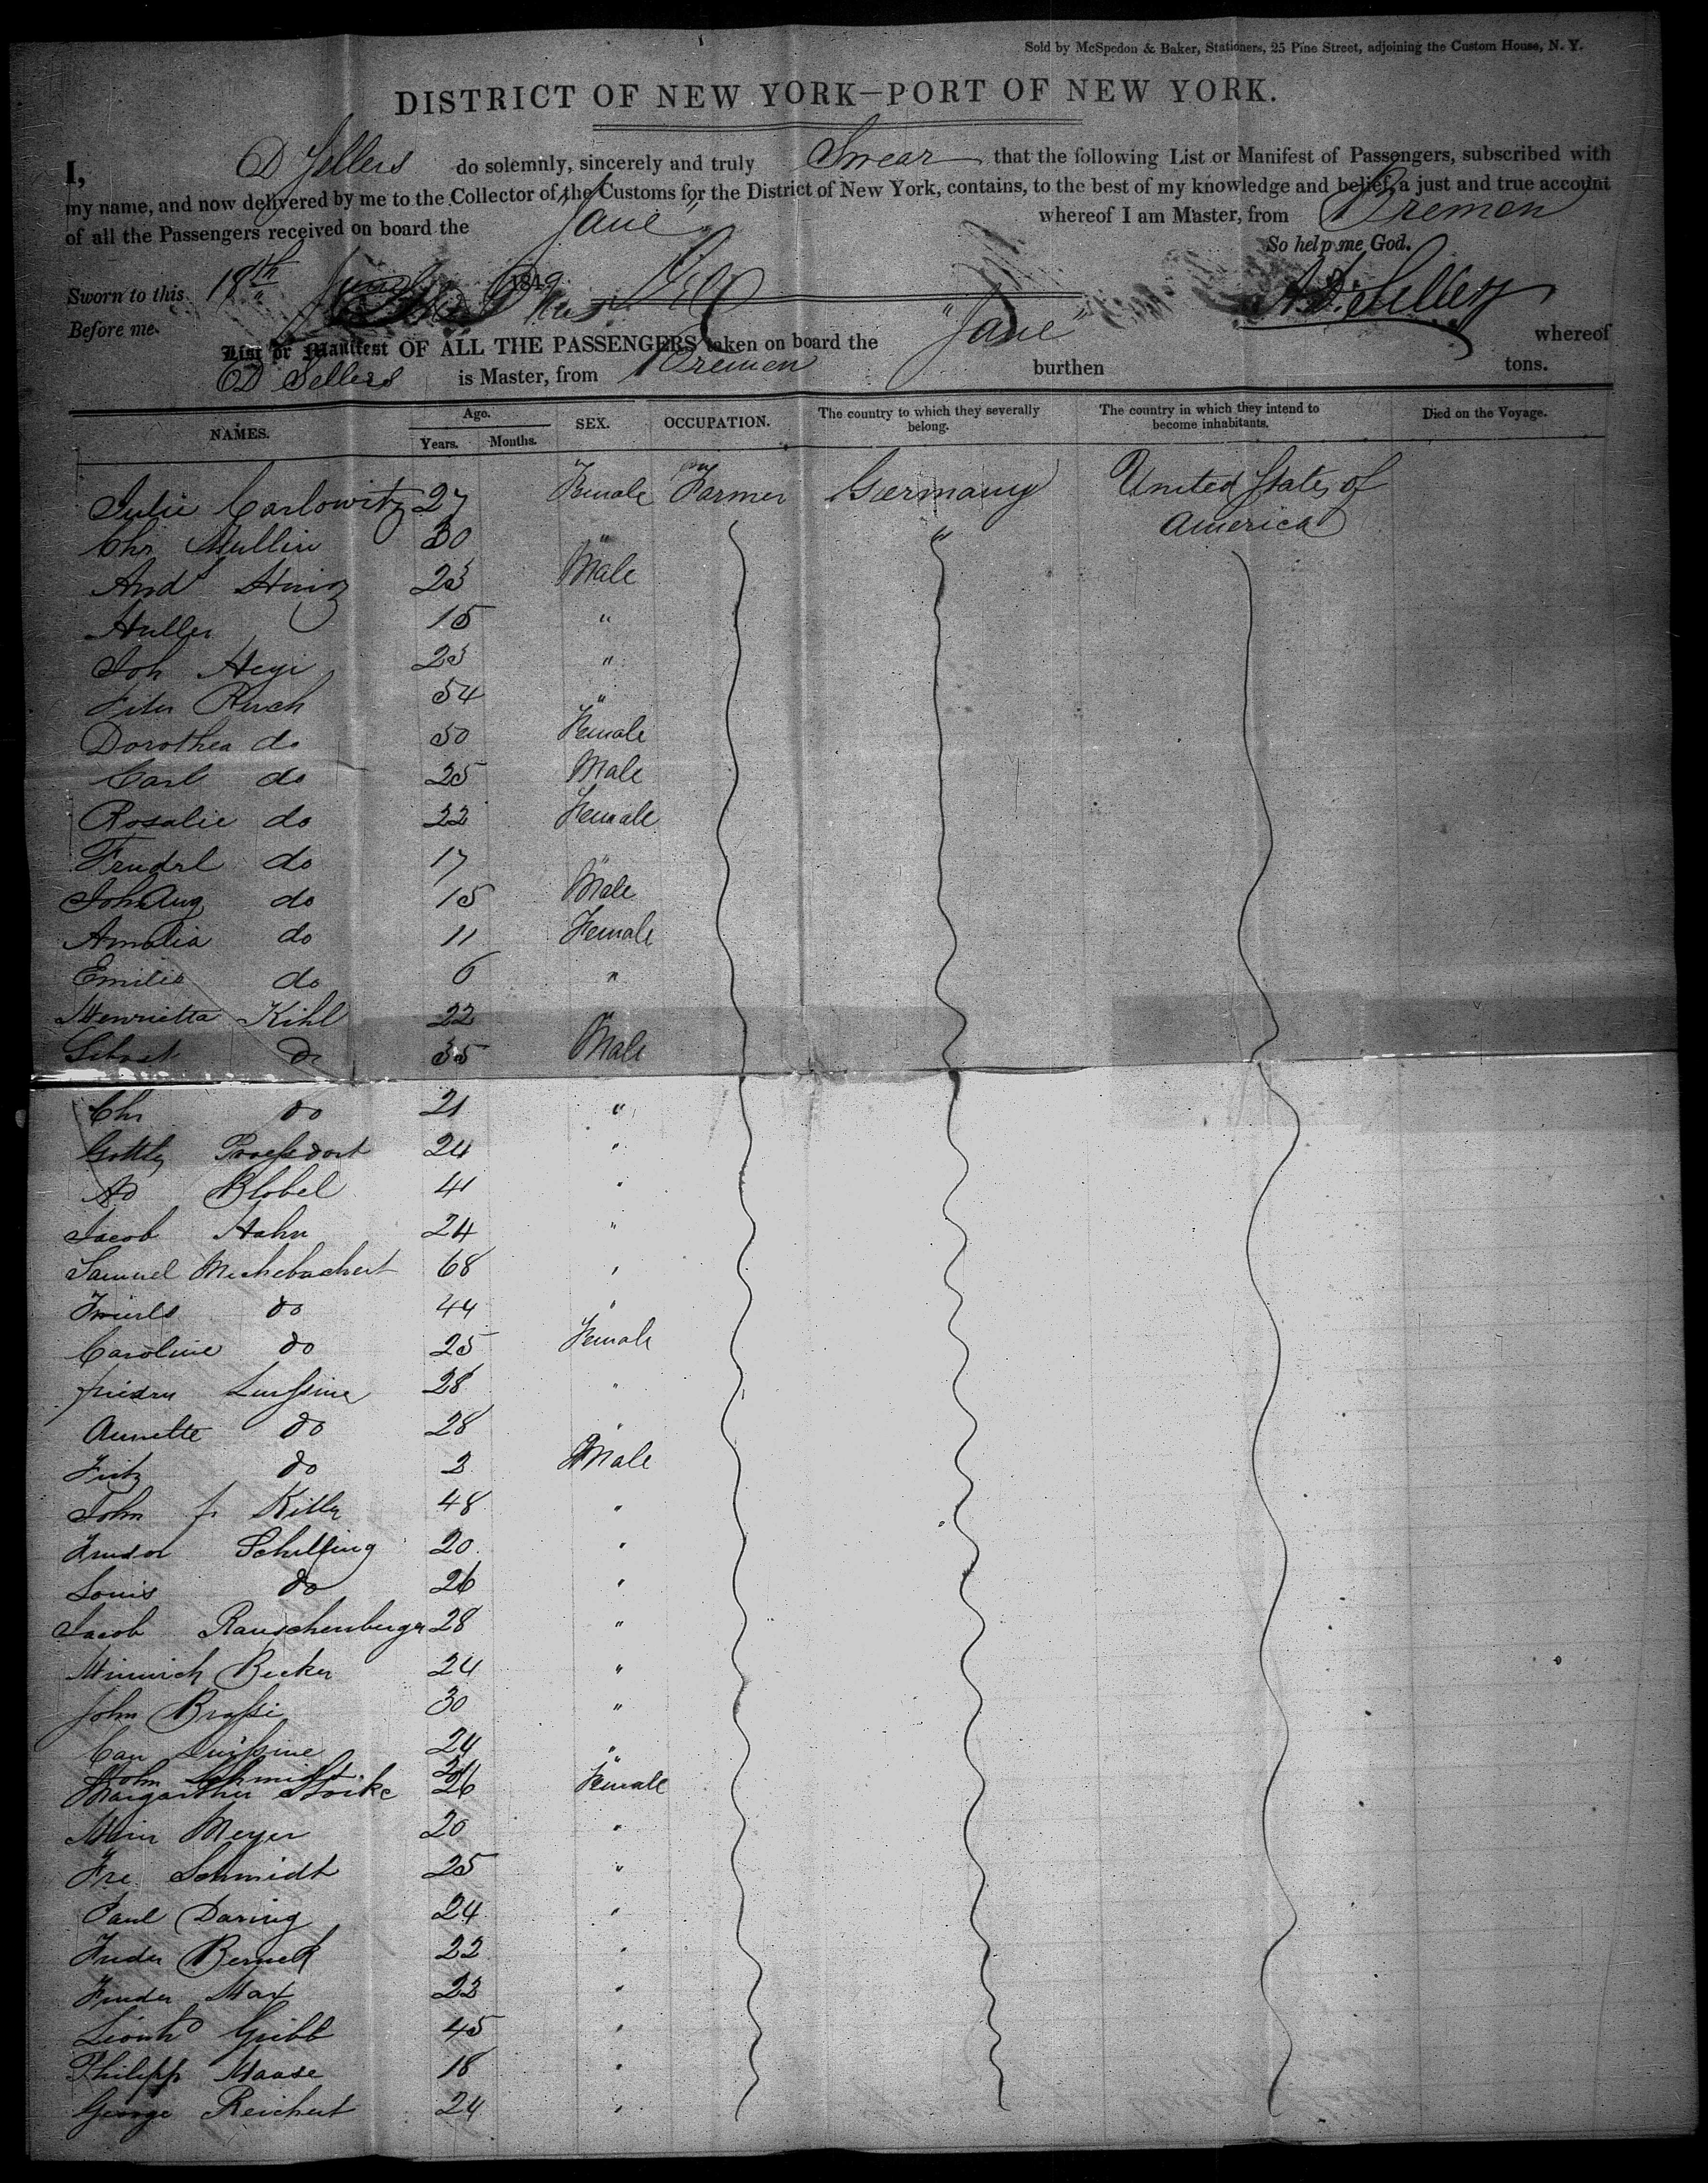 Sold by McSpedon & Baker, Stationers, 25 Pine Street, adjoining the Custom House, N. Y.
DISTRICT OF NEW YORK—PORT OF NEW YORK.
I, D Sellers do solemnly, sincerely and truly Swear that the following List or Manifest of Passengers, subscribed with
my name, and now delivered by me to the Collector of the Customs for the District of New York, contains, to the best of my knowledge and belief, a just and true account
of all the Passengers received on board the "Jane" whereof I am Master, from Bremen
So help me God.
Sworn to this 18th June 1849 D. Sellers
Before me
List or Manifest OF ALL THE PASSENGERS taken on board the "Jane" whereof
D Sellers is Master, from Bremen burthen tons.
NAMES. Age. Years. Months. SEX. OCCUPATION. The country to which they severally belong. The country in which they intend to become inhabitants. Died on the Voyage.
Julie Carlowitz 27 Female Farmer Germany United States of
America
Chr Mullin 30 " "
And Heinz 23 Male
Huller 15 "
Joh Heyi 23 "
Peter Resch 54 "
Dorothea do 50 Female
Carl do 25 Male
Rosalie do 22 Female
do 17 "
Joh Aug do 15 Male
Amalia do 11 Female
Emilie do 6 "
Henrietta Kihl 22 "
do 35 Male
Chr do 21 "
Gottly 24 "
Ad Blobel 41 "
Jacob Hahn 24 "
Samuel Michebachert 68 "
do 44 "
Caroline do 25 Female
28 "
Annette do 28 "
Fritz do 2 Male
John f. 48 "
Schilfing 20 "
Louis do 26 "
Jacob Rauschenberger 28 "
Hinrich Becker 24 "
John Braßi 30 "
24 "
John Schmidt 24 "
Margarther Storke 26 Female
Meyer 20 "
Fre Schmidt 25 "
Paul Daring 24 "
Berneck 22 "
Max 22 "
Gribb 45 "
Philipp Haase 18 "
George Reichert 24 "